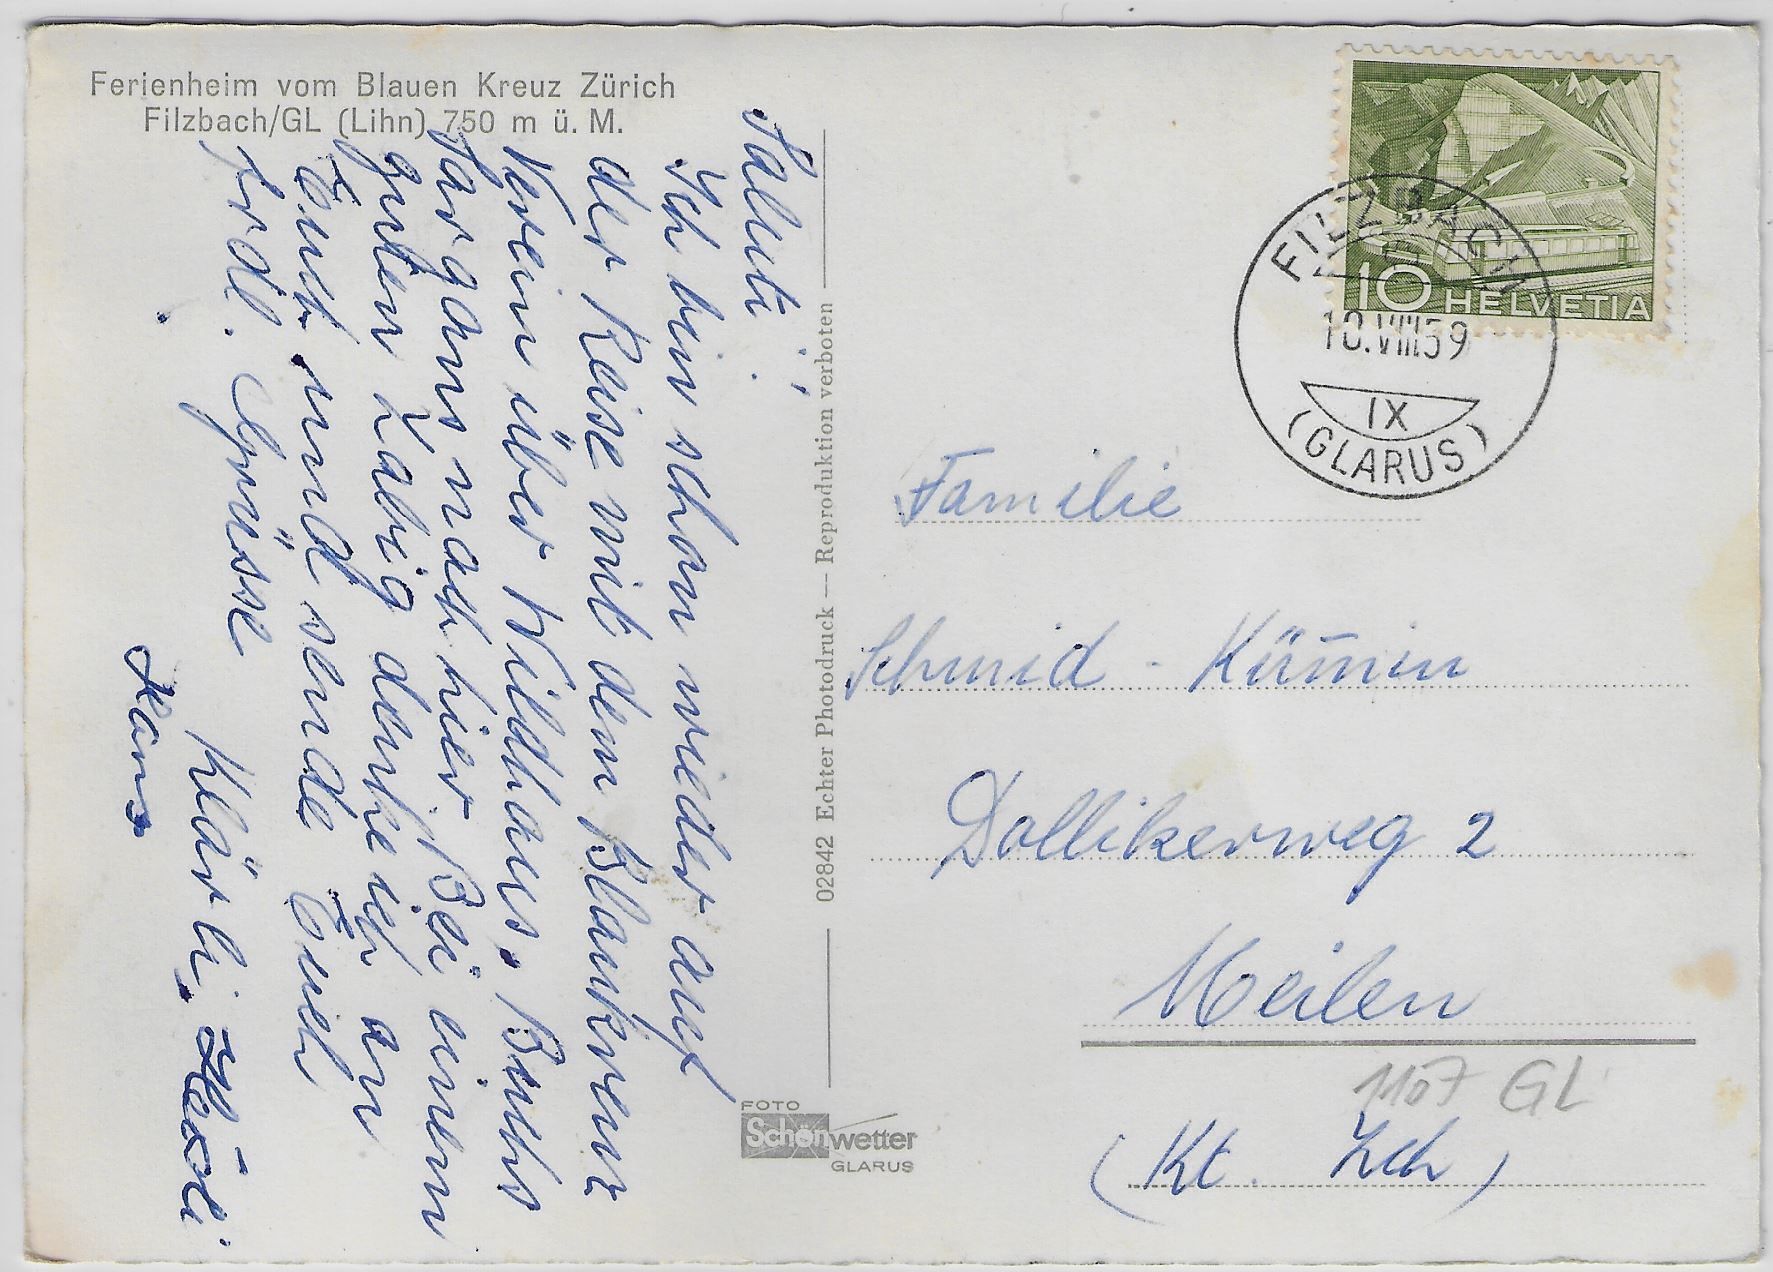 Ferienheim vom Blauen Kreuz Zürich
Filzbach/GL (Lihn) 750 m ü. M.
Saluti!
Ich bin schon wieder auf
der Reise mit dem Blaukreuz
Verein über Wildhaus, Buchs
Sargans nach hier. Bei einem
guten Zabig denke ich an
Euch und sende Euch
frdl. Grüsse
Klärli,
Hans
02842 Echter Photodruck — Reproduktion verboten
FOTO
Schönwetter
GLARUS
10 HELVETIA
FILZBACH
10.VIII59
IX
(GLARUS)
Familie
Schmid - Kümin
Dollikerweg 2
Meilen
1107 GL
(Kt. Zch)